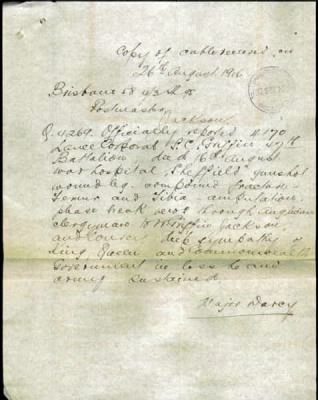 Copy of cable received on
26th August 1916
Brisbane 58 W 3
Postmaster
Jackson
Q. 4269. Officially reported 4170
Lance Corporal B.C. Griffin 47th
Battalion, died 6th August
war hospital, Sheffield gunshot
wound leg. compound fracture
Femur and Tibia - amputation,
please break news through Anglican
clergyman to Mr Griffin Jackson
and convey deep sympathy of
King Queen and Commonwealth
Government in loss he and
army sustained
Major Darcy